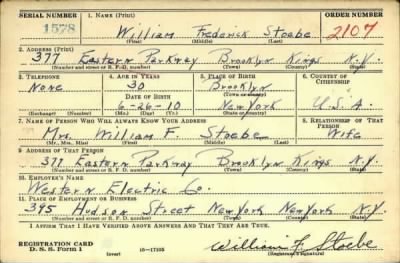 SERIAL NUMBER 1. NAME (Print) ORDER NUMBER
1578 William Frederick Stoebe 2107
(First) (Middle) (Last)
2. ADDRESS (Print)
377 Eastern Parkway Brooklyn Kings N.Y.
(Number and street or R. F. D. number) (Town) (County) (State)
3. TELEPHONE 4. AGE IN YEARS 5. PLACE OF BIRTH 6. COUNTRY OF CITIZENSHIP
None 30 Brooklyn
DATE OF BIRTH (Town or county)
6-26-10 New York U.S.A.
(Exchange) (Number) (Mo.) (Day) (Yr.) (State or country)
7. NAME OF PERSON WHO WILL ALWAYS KNOW YOUR ADDRESS 8. RELATIONSHIP OF THAT PERSON
Mrs. William F. Stoebe Wife
(Mr., Mrs., Miss) (First) (Middle) (Last)
9. ADDRESS OF THAT PERSON
377 Eastern Parkway Brooklyn Kings N.Y.
(Number and street or R. F. D. number) (Town) (County) (State)
10. EMPLOYER'S NAME
Western Electric Co.
11. PLACE OF EMPLOYMENT OR BUSINESS
395 Hudson Street New York New York N.Y.
(Number and street or R. F. D. number) (Town) (County) (State)
I AFFIRM THAT I HAVE VERIFIED ABOVE ANSWERS AND THAT THEY ARE TRUE.
REGISTRATION CARD
D. S. S. Form 1 (over) 16-17105 William F. Stoebe
(Registrant's signature)